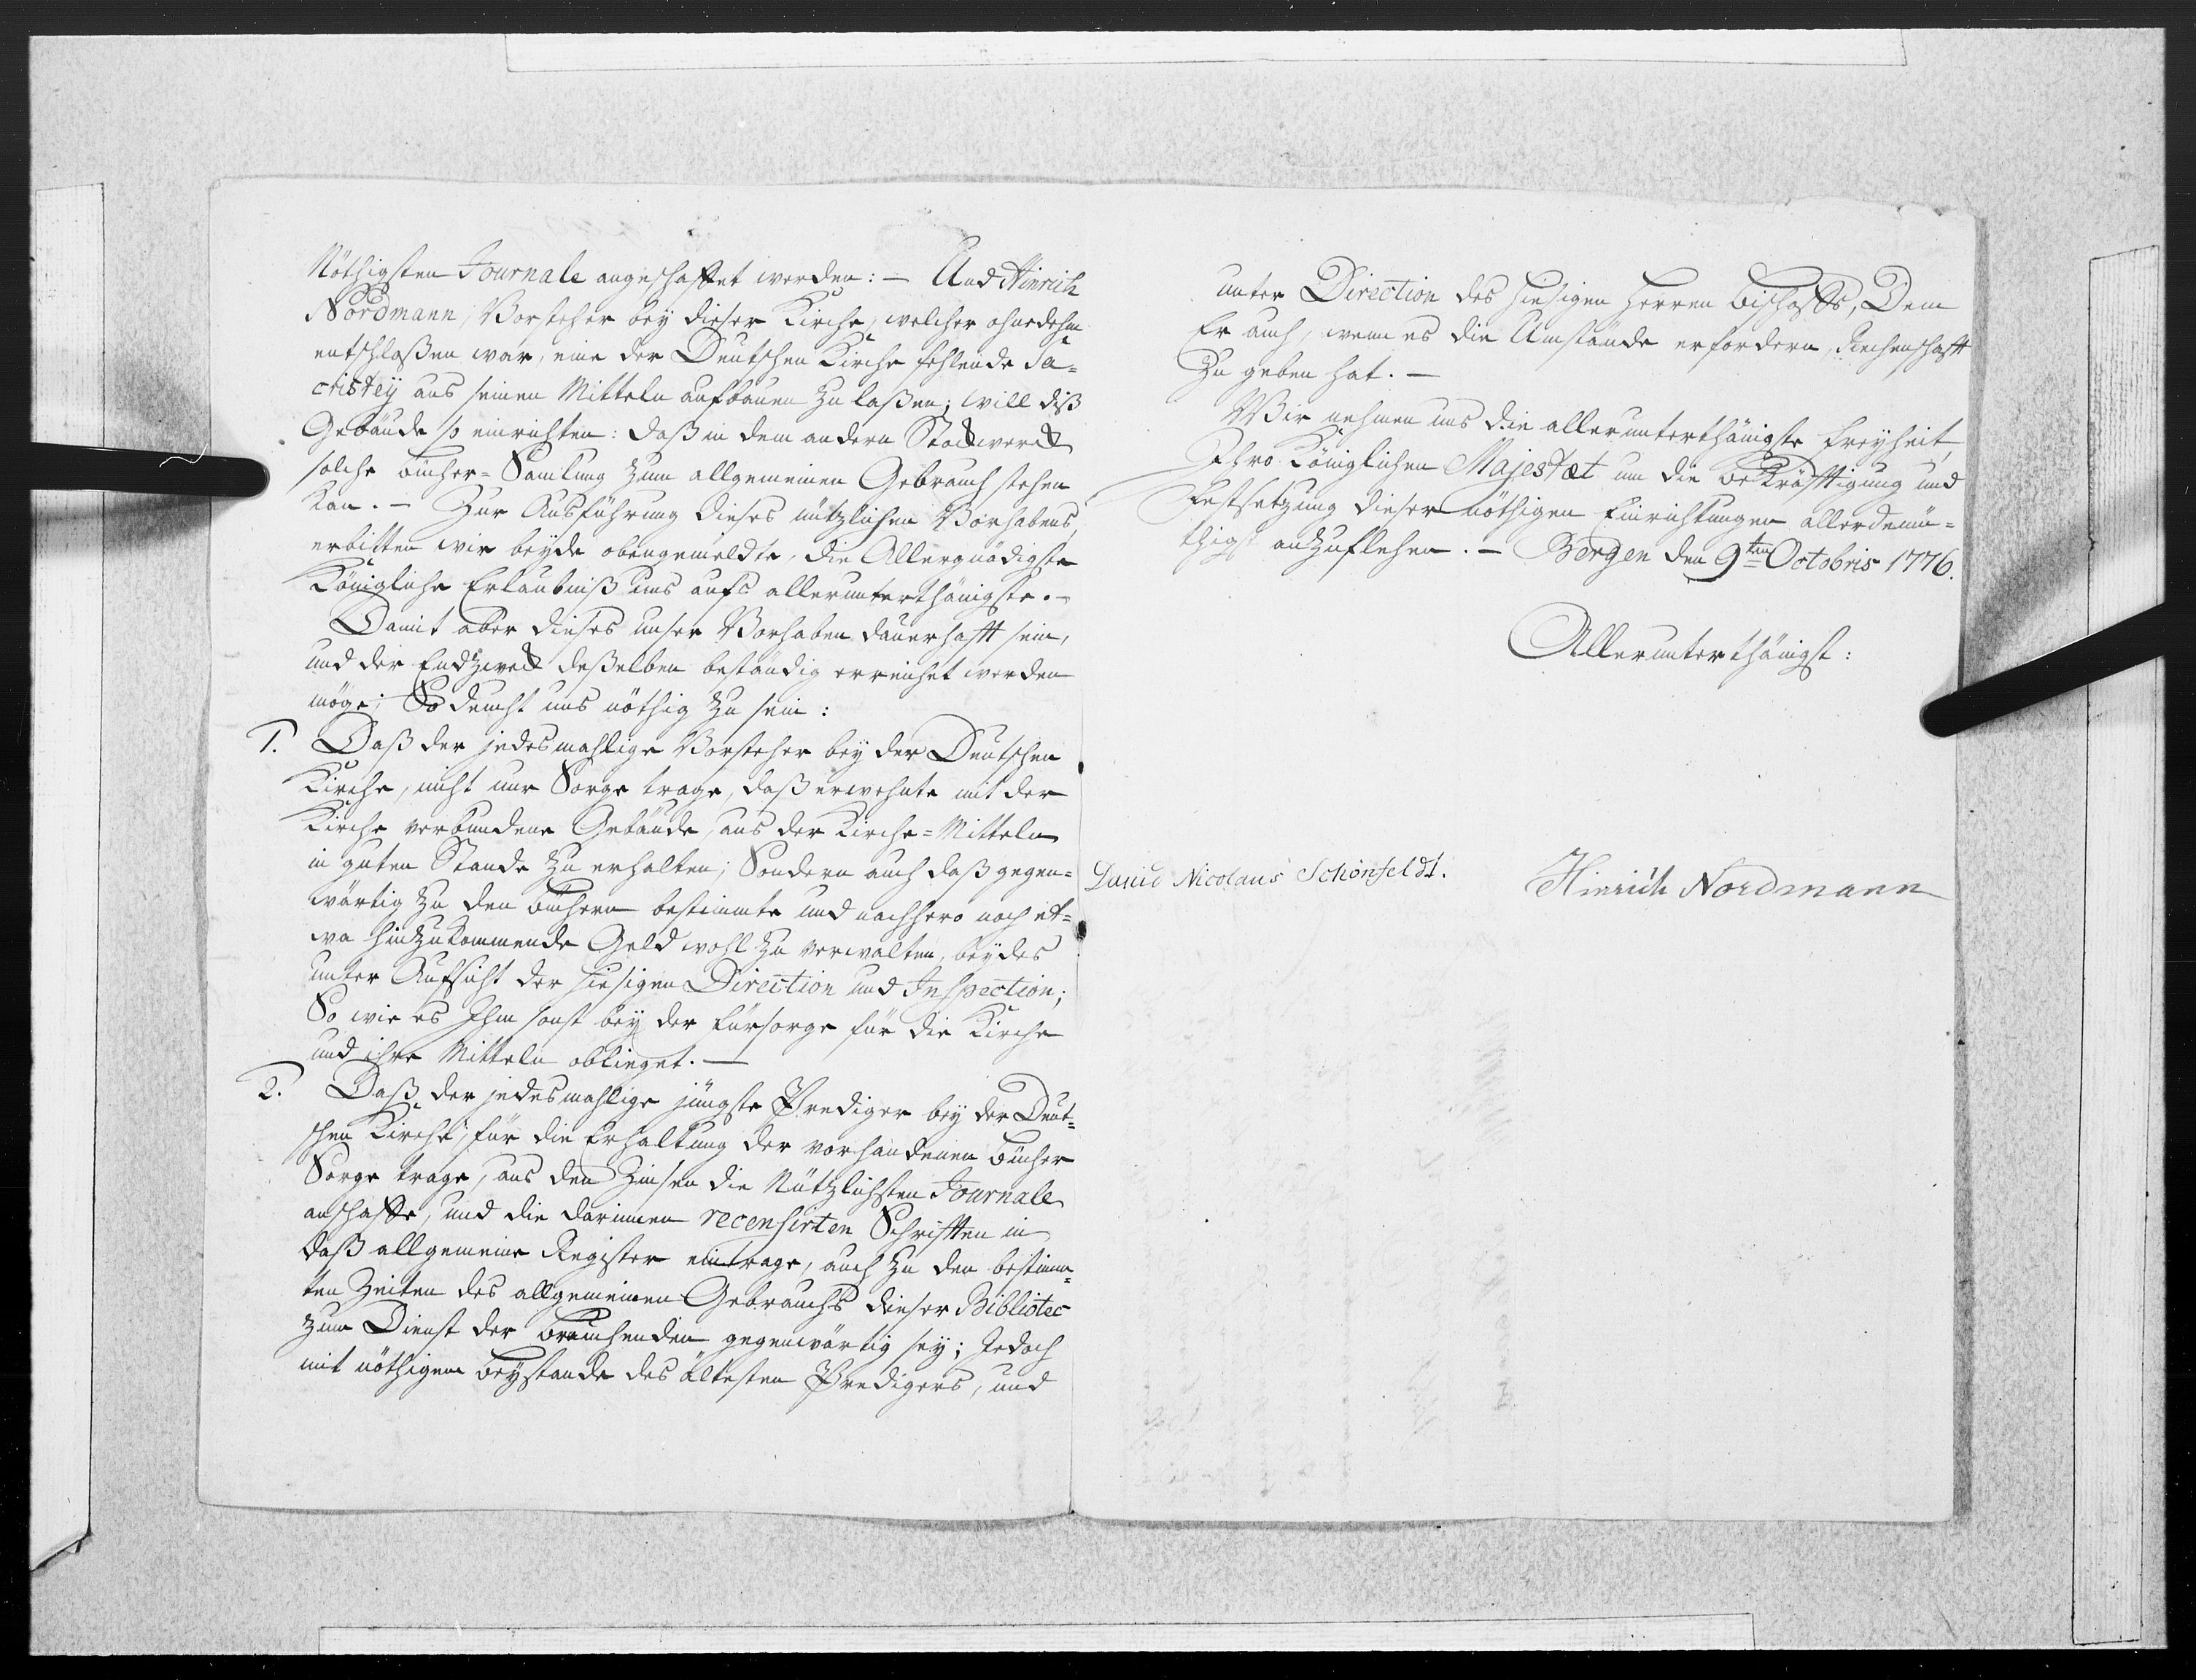 Nöthigsten Journale angeschaffet werden: — Und Hinrich
Nordmann, Vorsteher bey dieser Kirche, welcher ohnedehm
entschloßen war, eine der Deutschen Kirche fehlende Sa=
cristey aus seinen Mitteln aufbauen zu laßen; will diß
Gebäude so einrichten: daß in dem andern Stockwerck
solche bücher=Samlung zum allgemeinen Gebrauch stehen
kan. — Zur Ausführung dieses nützlichen Vorhabens,
erbitten wir beyde obengemeldte, die Allergnädigste
Königliche Erlaubniß uns aufs allerunterthänigste. —
Damit aber dieses unser Vorhaben dauerhafft sein,
und der Endzweck deßelben beständig erreichet werden
möge; So deucht uns nöthig zu sein:
1. Daß der jedesmahlige Vorsteher bey der Deutschen
Kirche, nicht nur Sorge trage, daß erwehnte mit der
Kirche verbundene Gebäude, aus der Kirche=Mitteln
in guten Stande zu erhalten; Sondern auch daß gegen=
wärtig zu den büchern bestimmte und nachhero noch et=
wa hinzukommende Geld wohl zu verwalten, beydes
unter Aufsicht der hiesigen Direction und Inspection;
So wie es Ihm sonst bey der fürsorge für die Kirche
und ihre Mitteln oblieget. —
2. Daß der jedesmahlige jüngste Prediger bey der Deut=
schen Kirche, für die Erhaltung der vorhandenen bücher
Sorge trage, aus den Zinsen die Nützlichsten Journale
anschaffe, und die darinnen recensirten Schrifften in
daß allgemeine Register eintrage, auch zu den bestimm=
ten Zeiten des allgemeinen Gebrauchs dieser Bibliotec
zum Dienst der brauchenden gegenwärtig sey; Jedoch
mit nöthigem beystande des ältesten Predigers, und
unter Direction des hiesigen Herren Bischoffs, Dem
Er auch, wenn es die Umstände erfordern, Rechenschafft
zu geben hat. —
Wir nehmen uns die allerunterthänigste freyheit,
Ihro Königlichen Majestæt um die bekräfftigung und
Festsetzung dieser nöthigen Einrichtungen allerdemü=
thigst anzuflehen. — Bergen den 9ten Octobris 1776.
Allerunterthänigst:
David Nicolaus Schönfeldt.
Hinrich Nordmann